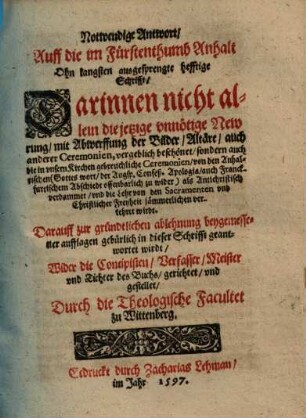 Notwendige Antwort/
Auff die im Fürstenthumb Anhalt
Ohn langsten ausgesprengte hefftige
Schrifft/
Darinnen nicht al-
lein die jetzige unnötige New
rung/ mit Abwerffung der Bilder/ Altäre/ auch
anderer Ceremonien, vergeblich beschönet/ sondern auch
die in unsern Kirchen gebreuchliche Ceremonien/ von den Anhal-
tischen (Gottes wort/ der Augsp. Confess. Apologia/ auch Franck-
furtischem Abschiede offenbarlich zu wider) als Antichristisch
verdammet/ und die Lehr von den Sacramenten und
Christlicher Freiheit jämmerlichen ver-
kehret wirdt.
Darauff zur gründtlichen ablehnung beygemesse-
ner aufflagen gebürlich in dieser Schrifft geant-
wortet wirdt/
Wider die Concipisten/ Verfasser/ Meister
und Tichter des Buchs/ gerichtet/ und
gestellet/
Durch die Theologische Facultet
zu Wittenberg.
Gedruckt durch Zacharias Lehman/
im Jahr 1597.